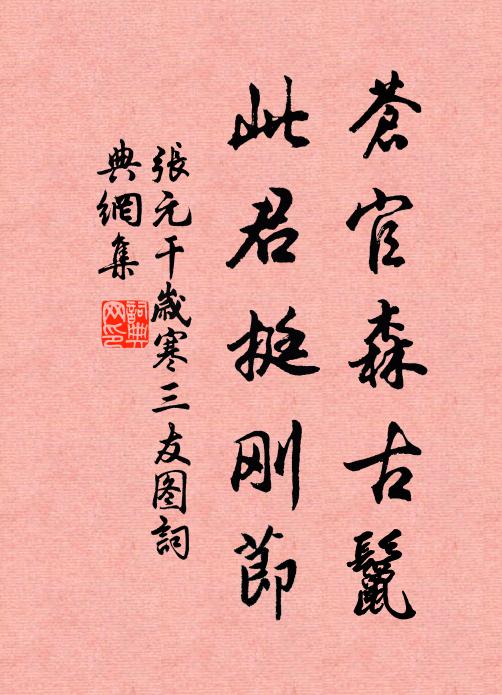 蒼官森古鬣
此君挺刚節
張元干歲寒三友图詞
典網集
詞典网印